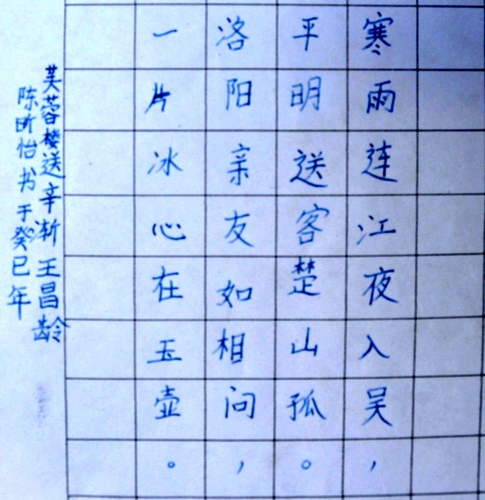 寒雨连江夜入吴，
平明送客楚山孤。
洛阳亲友如相问，
一片冰心在玉壶。
芙蓉楼送辛渐 王昌龄
陈昕怡书于癸巳年